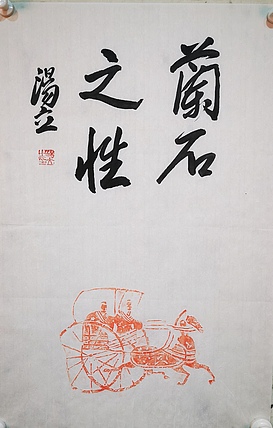 蘭石
之性
湯立